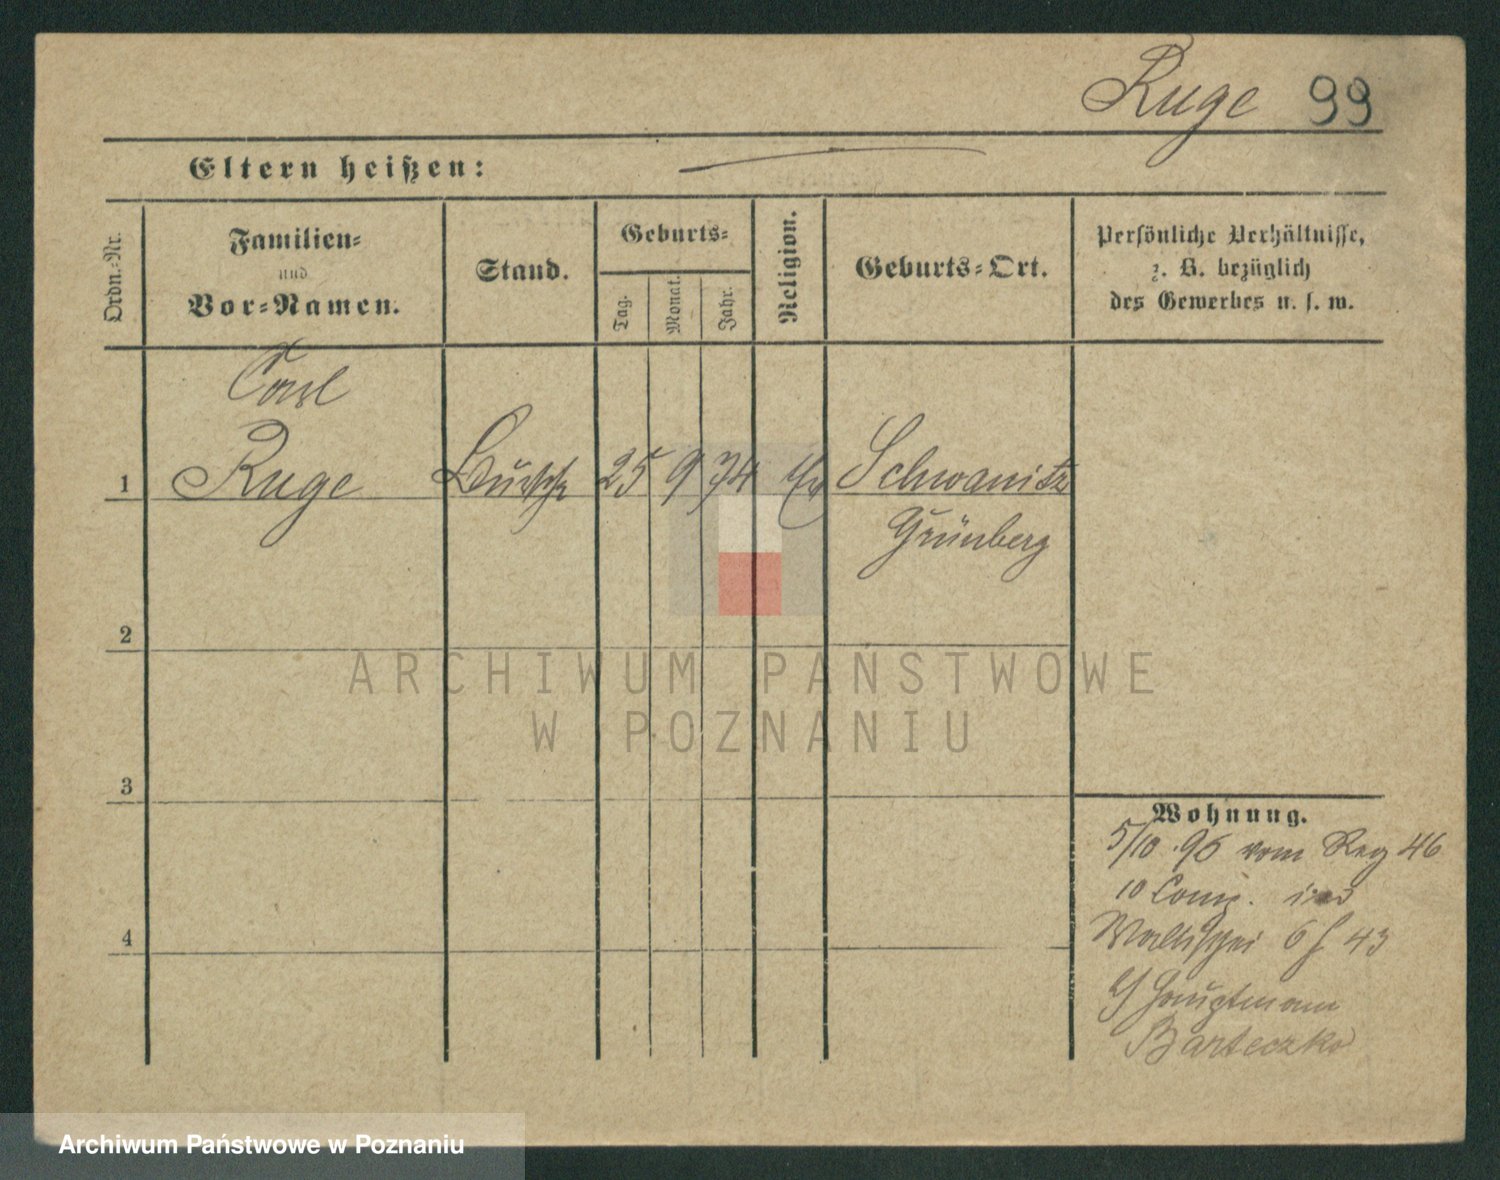 Ruge 99
Eltern heißen:
Ordn.-Nr.
Familien-
und
Vor-Namen.
Stand.
Geburts-
Tag.
Monat.
Jahr.
Religion.
Geburts-Ort.
Persönliche Verhältnisse,
z. B. bezüglich
des Gewerbes u. s. w.
Carl
1 Ruge Bursche 25 9 74 Ev Schwanitz
Grünberg
2
ARCHIWUM PAŃSTWOWE
W POZNANIU
3
Wohnung.
5/10.96 vom Reg 46
10 Comp.
4
Wallischei 6 f 43
Hauptmann
Barteczko
Archiwum Państwowe w Poznaniu